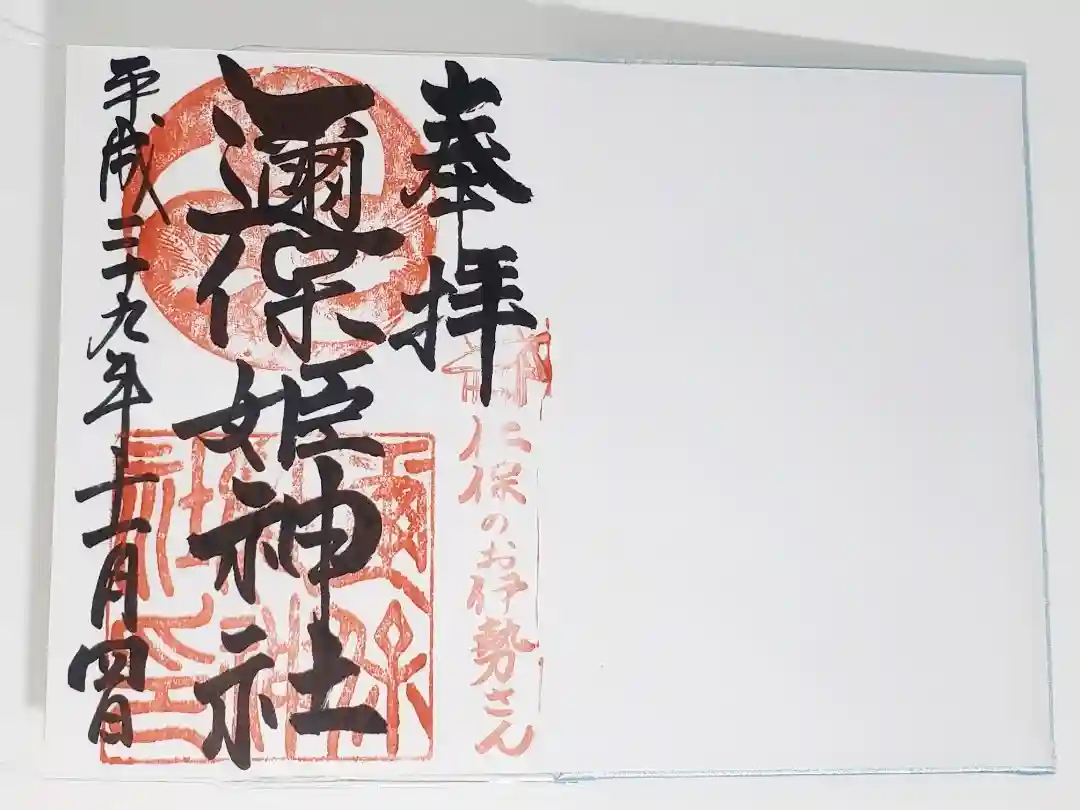 奉拝
仁保のお伊勢さん
邇保姫神社
平成二十九年十一月四日